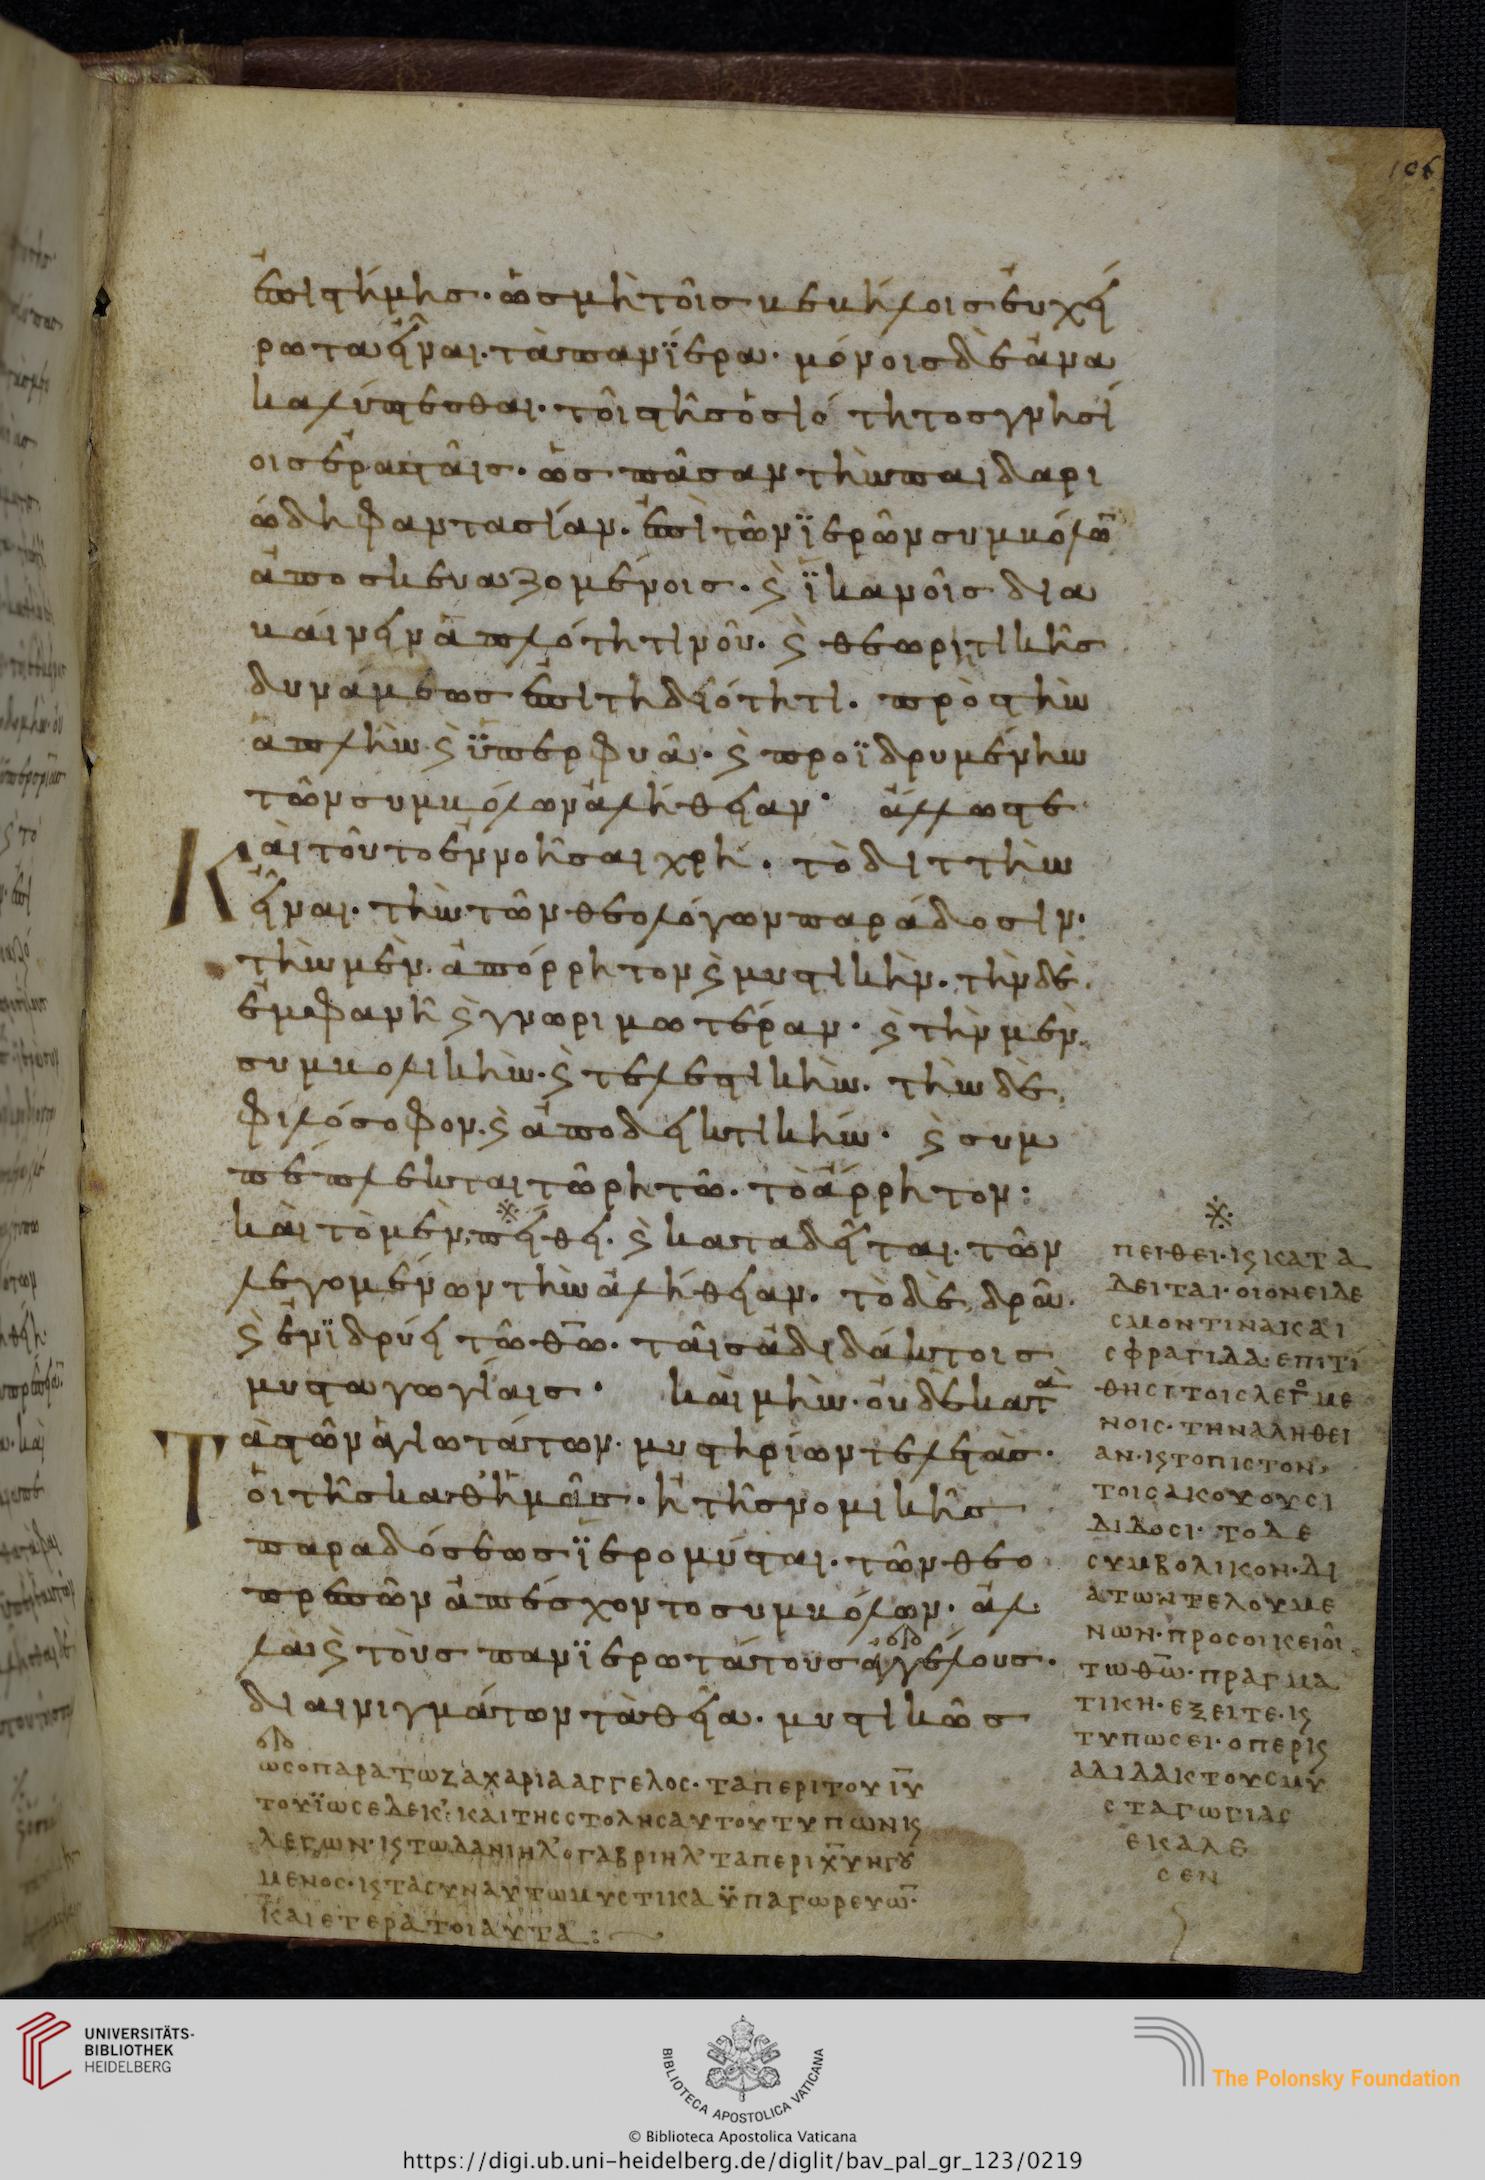 106
ἐπιστήμης · ὡς μὴ τοῖς βεβήλοις εὐχεί
ρωτα εἶναι · τὰ πανϊερα · μόνοις δὲ ἀνα
καλύπτεσθαι · τοῖς τῆς ὁσιότητος γνησί
οις ἐρασταῖς · ὡς πᾶσαν τὴν παιδαρι
ώδη φαντασίαν · ἐπὶ τῶν ϊερῶν συμβόλω̅
ἀποσκευαζομένοις · ϛ̀ ϊκανοῖς δια
βαίνειν ἁπλότητι νοῦ · ϛ̀ θεωρητικῆς
δυνάμεως ἐπιτηδειότητι · πρὸς τὴν
ἁπλὴν ϛ̀ ϋπερφυᾶ · ϛ̀ προϊδρυμένην
τῶν συμβόλων ἀλήθειαν · ἄλλως τε
Καὶ τοῦτο ἐννοῆσαι χρὴ · τὸ διττὴν
εἶναι · τὴν τῶν θεολόγων παράδοσιν ·
τὴν μὲν · ἀπόρρητον ϛ̀ μυστικὴν · τὴν δὲ ·
ἐμφανῆ ϛ̀ γνωριμωτέραν · ϛ̀ τὴν μὲν ·
συμβολικὴν · ϛ̀ τελεστικὴν · τὴν δὲ ·
φιλόσοφον · ϛ̀ ἀποδεικτικήν · ϛ̀ συμ
πέπλεκται τῶ ρητῶ · τὸ ἄρρητον :
καὶ τὸ μὲν · πείθει · ϛ̀ καταδεῖται · τῶν
λεγομένων τὴν ἀλήθειαν · τὸ δὲ, δρᾶ ·
ϛ̀ ἐνϊδρύει τῶ θ̅ω̅ · ταῖς ἀδιδάκτοις
μυσταγωγίαις · καὶ μὴν · οὐδὲ κατὰ
Τὰς τῶν ἁγιωτάτων · μυστηρίων τελετὰς ·
ὁι τῆς καθ' ἡμᾶς · ἢ τῆς νομικῆς
παραδόσεως ϊερομύσται · τῶν θεο
πρεπῶν ἀπέσχοντο συμβόλων · ἀλ
λὰ ϛ̀ τοὺς πανϊερωτάτους ἀγγέλους ·
δι αινιγμάτων τὰ θεῖα · μυστικῶς
ΠΕΙΘΕΙ · ϛ ΚΑΤΑ
ΔΕΙΤΑΙ · ΟΙΟΝΕΙ ΔΕ
ϹΜΟΝ ΤΙΝΑ ΚΑΙ
ϹΦΡΑΓΙΔΑ · ΕΠΙΤΙ
ΘΗϹΙ ΤΟΙϹ ΛΕΓΟΜΕ
ΝΟΙϹ · ΤΗΝ ΑΛΗΘΕΙ
ΑΝ · ϛ ΤΟ ΠΙϹΤΟΝ,
ΤΟΙϹ ΑΚΟΥΟΥϹΙ
ΔΙΔΩϹΙ · ΤΟ ΔΕ
ϹΥΜΒΟΛΙΚΟΝ · ΔΙ
Α ΤΩΝ ΤΕΛΟΥΜΕ
ΝΩΝ · ΠΡΟϹΟΙΚΕΙΟΙ
ΤΩ Θ̅Ω̅ · ΠΡΑΓΜΑ
ΤΙΚΗ · ΕΞΕΙ ΤΕ · ϛ
ΤΥΠΩϹΕΙ · ΟΠΕΡ ϛ
ΑΔΙΔΑΚΤΟΥϹ ΜΥ
ϹΤΑΓΩΓΙΑϹ
ΕΚΑΛΕ
ϹΕΝ
ΩϹ Ο ΠΑΡΑ ΤΩ ΖΑΧΑΡΙΑ ΑΓΓΕΛΟϹ · ΤΑ ΠΕΡΙ ΤΟΥ Ι̅Υ̅
ΤΟΥ ΪΩϹΕΔΕΚ : ΚΑΙ ΤΗϹ ϹΤΟΛΗϹ ΑΥΤΟΥ ΤΥΠΩΝ ϛ
ΛΕΓΩΝ · ϛ ΤΩ ΔΑΝΙΗΛ Ο ΓΑΒΡΙΗΛ ΤΑ ΠΕΡΙ Χ̅Υ̅ ΗΓΟΥ
ΜΕΝΟϹ · ϛ ΤΑ ϹΥΝ ΑΥΤΩ ΜΥϹΤΙΚΑ ΫΠΑΓΩΡΕΥΩ̅ ·
ΚΑΙ ΕΤΕΡΑ ΤΟΙΑΥΤΑ :
UNIVERSITÄTS-
BIBLIOTHEK
HEIDELBERG
BIBLIOTECA APOSTOLICA VATICANA
© Biblioteca Apostolica Vaticana
The Polonsky Foundation
https://digi.ub.uni-heidelberg.de/diglit/bav_pal_gr_123/0219